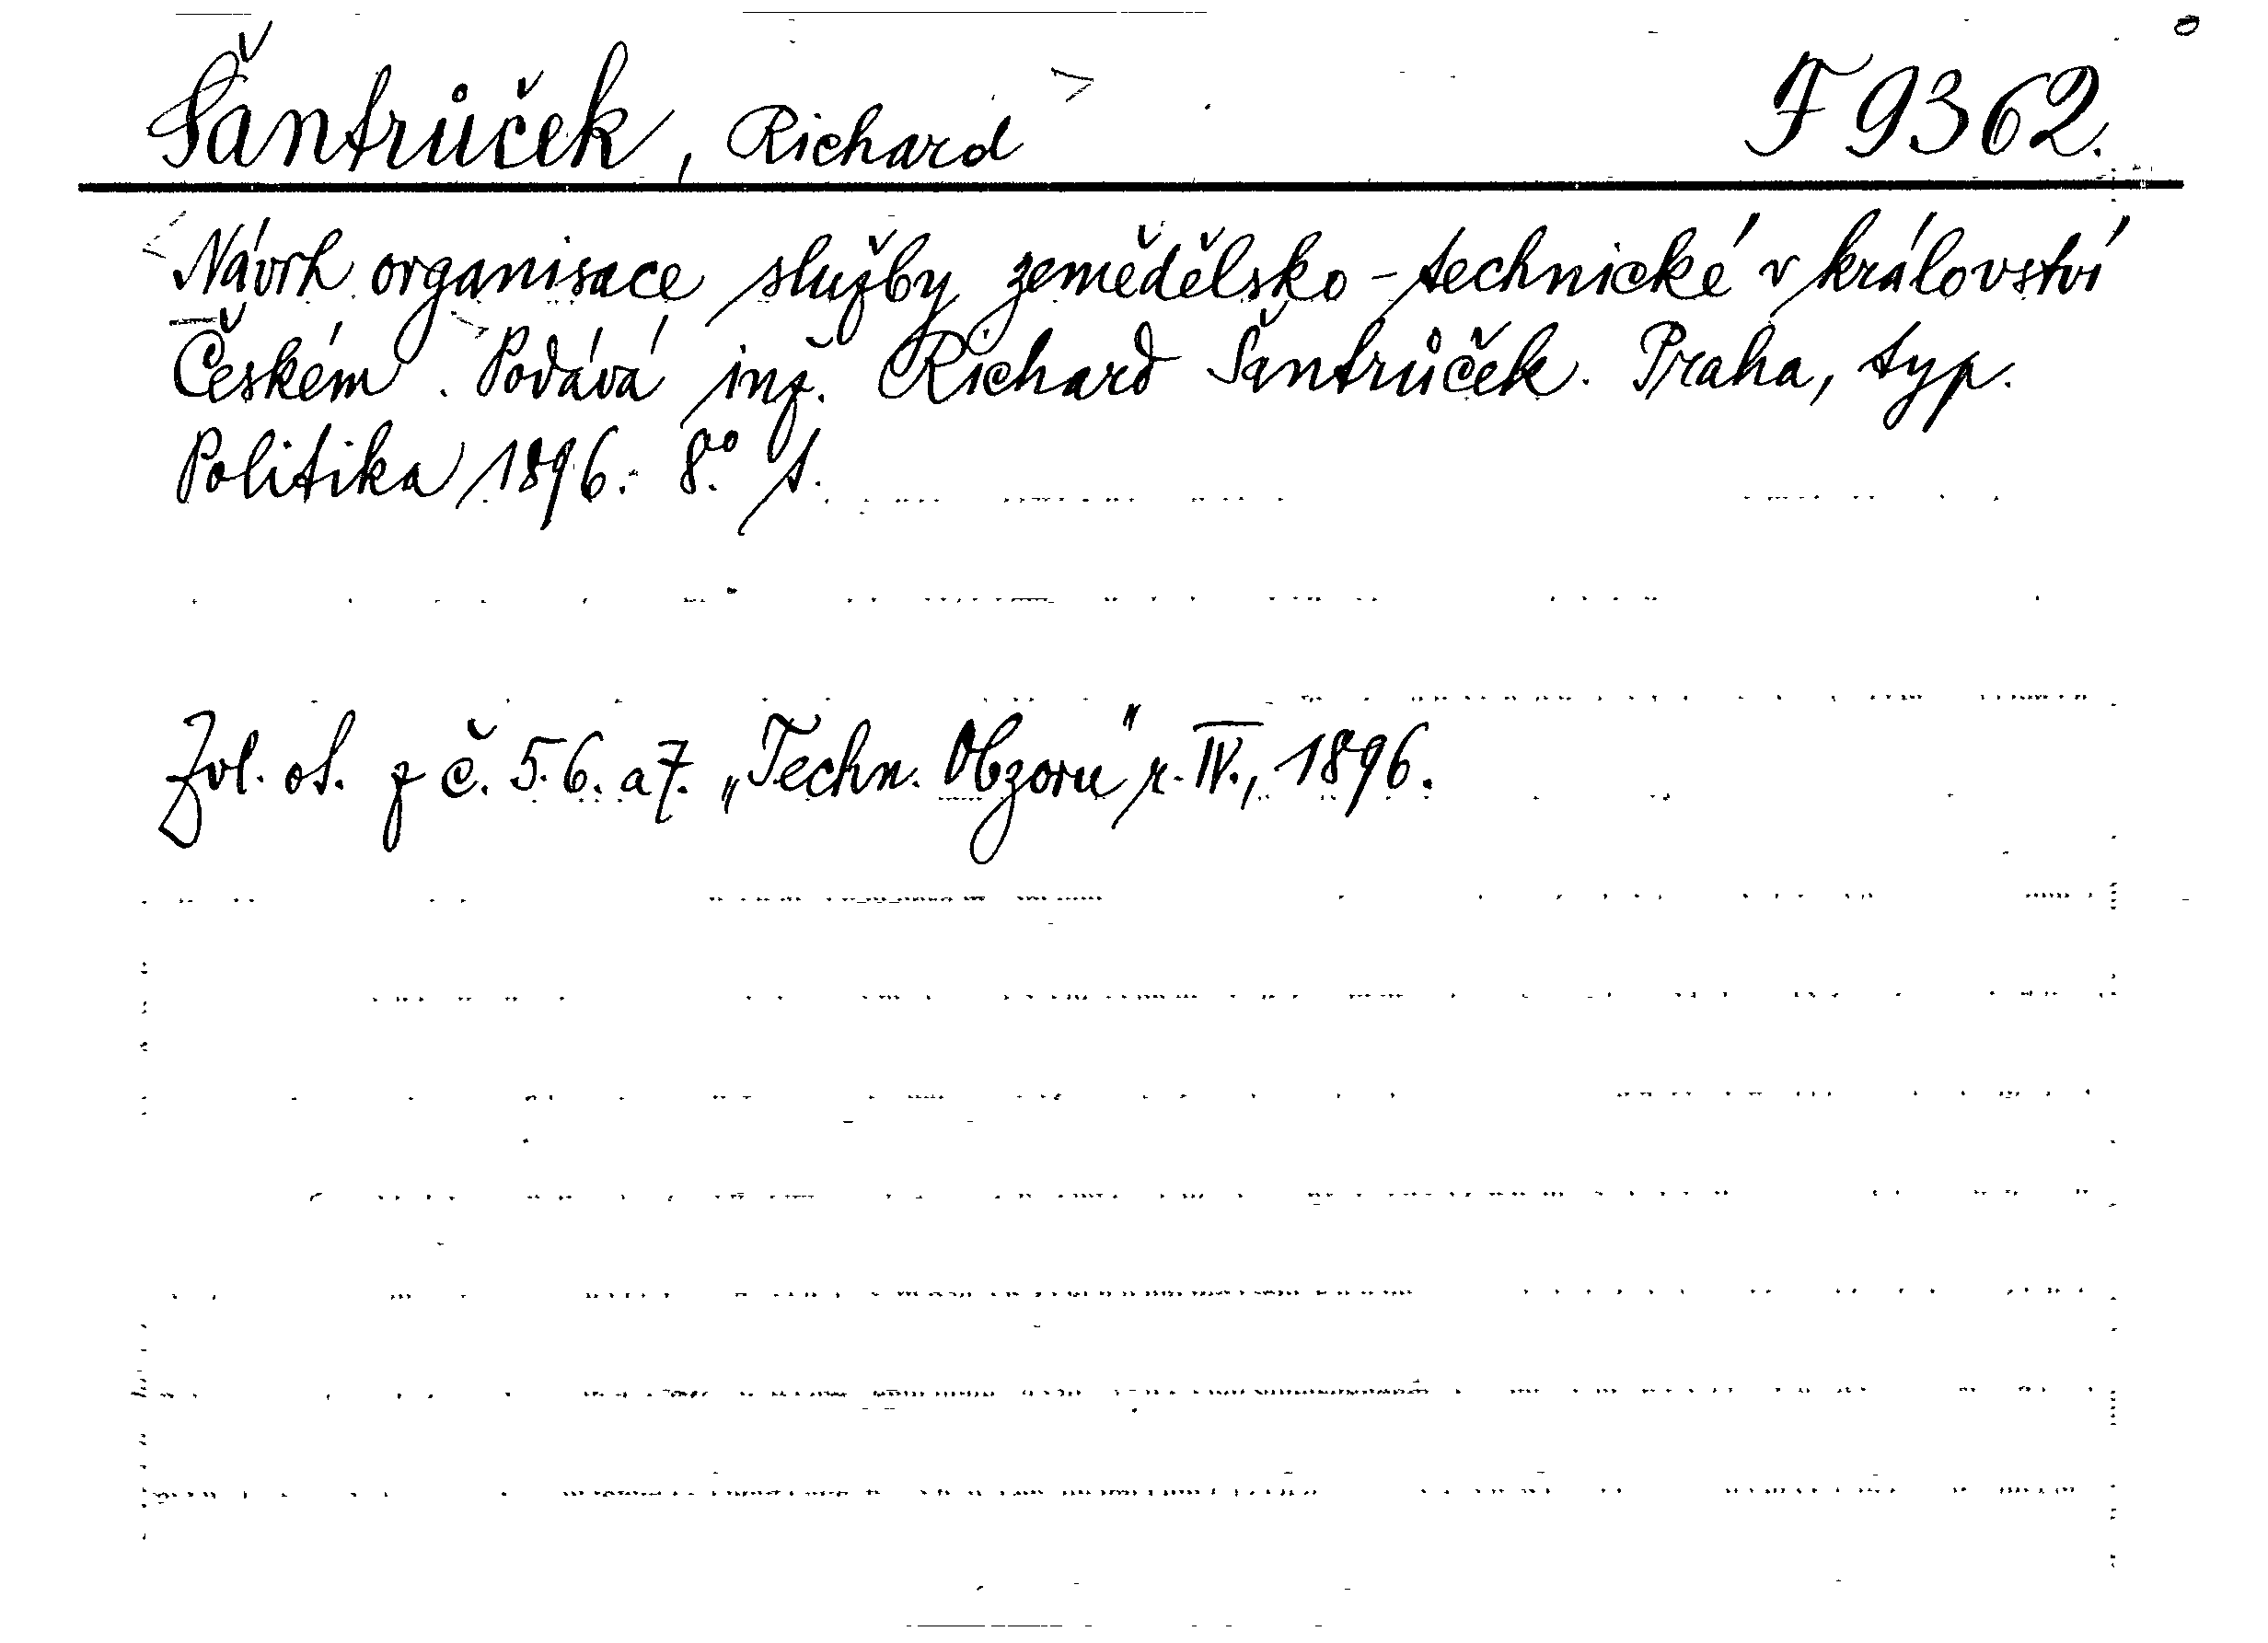 Šantrůček, Richard F 9362.
Návrh organisace služby zemědělsko-technické v království
Českém. Podává inž. Richard Šantrůček. Praha, typ.
Politika 1896. 8.° s.
Zvl. ot. z č. 5. 6. a 7. „Techn. Obzoru" r. IV., 1896.